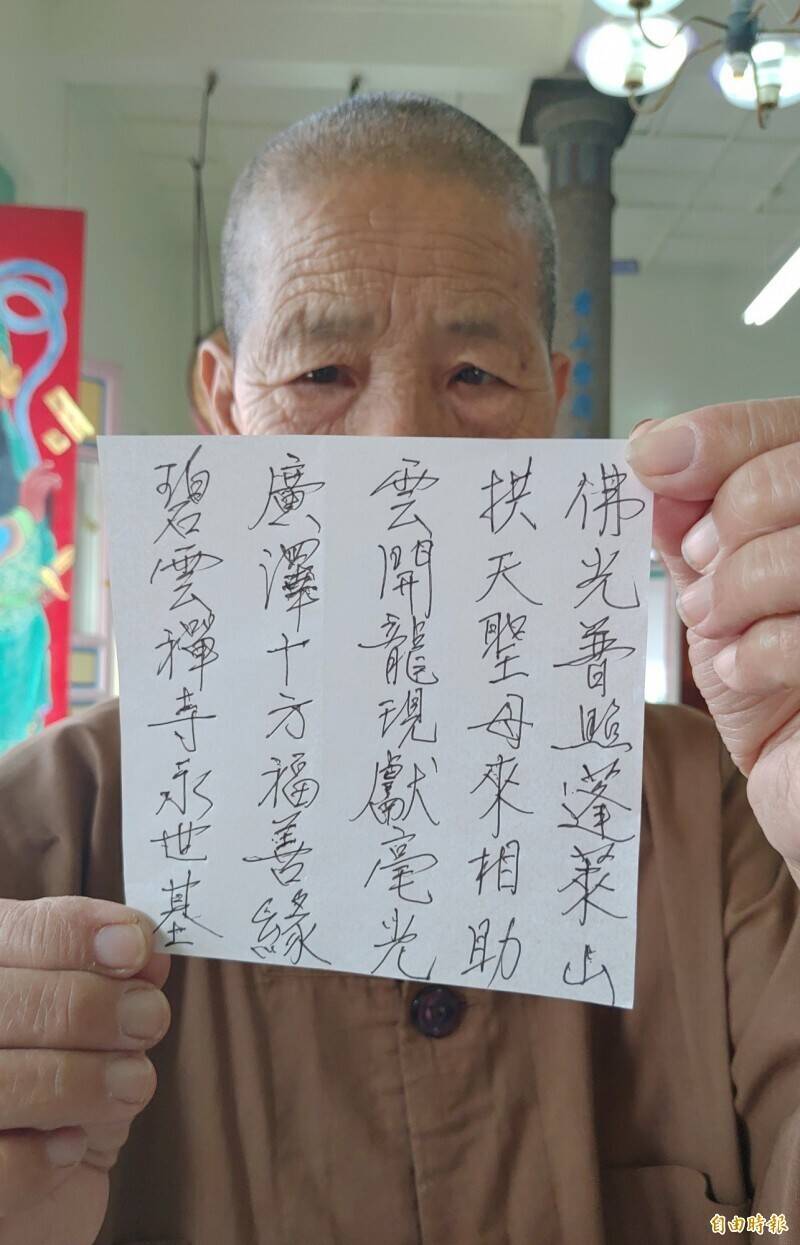 佛光普照蓬萊山
拱天聖母來相助
雲開龍現獻毫光
廣澤十方福善緣
碧雲禪寺永世基
自由時報